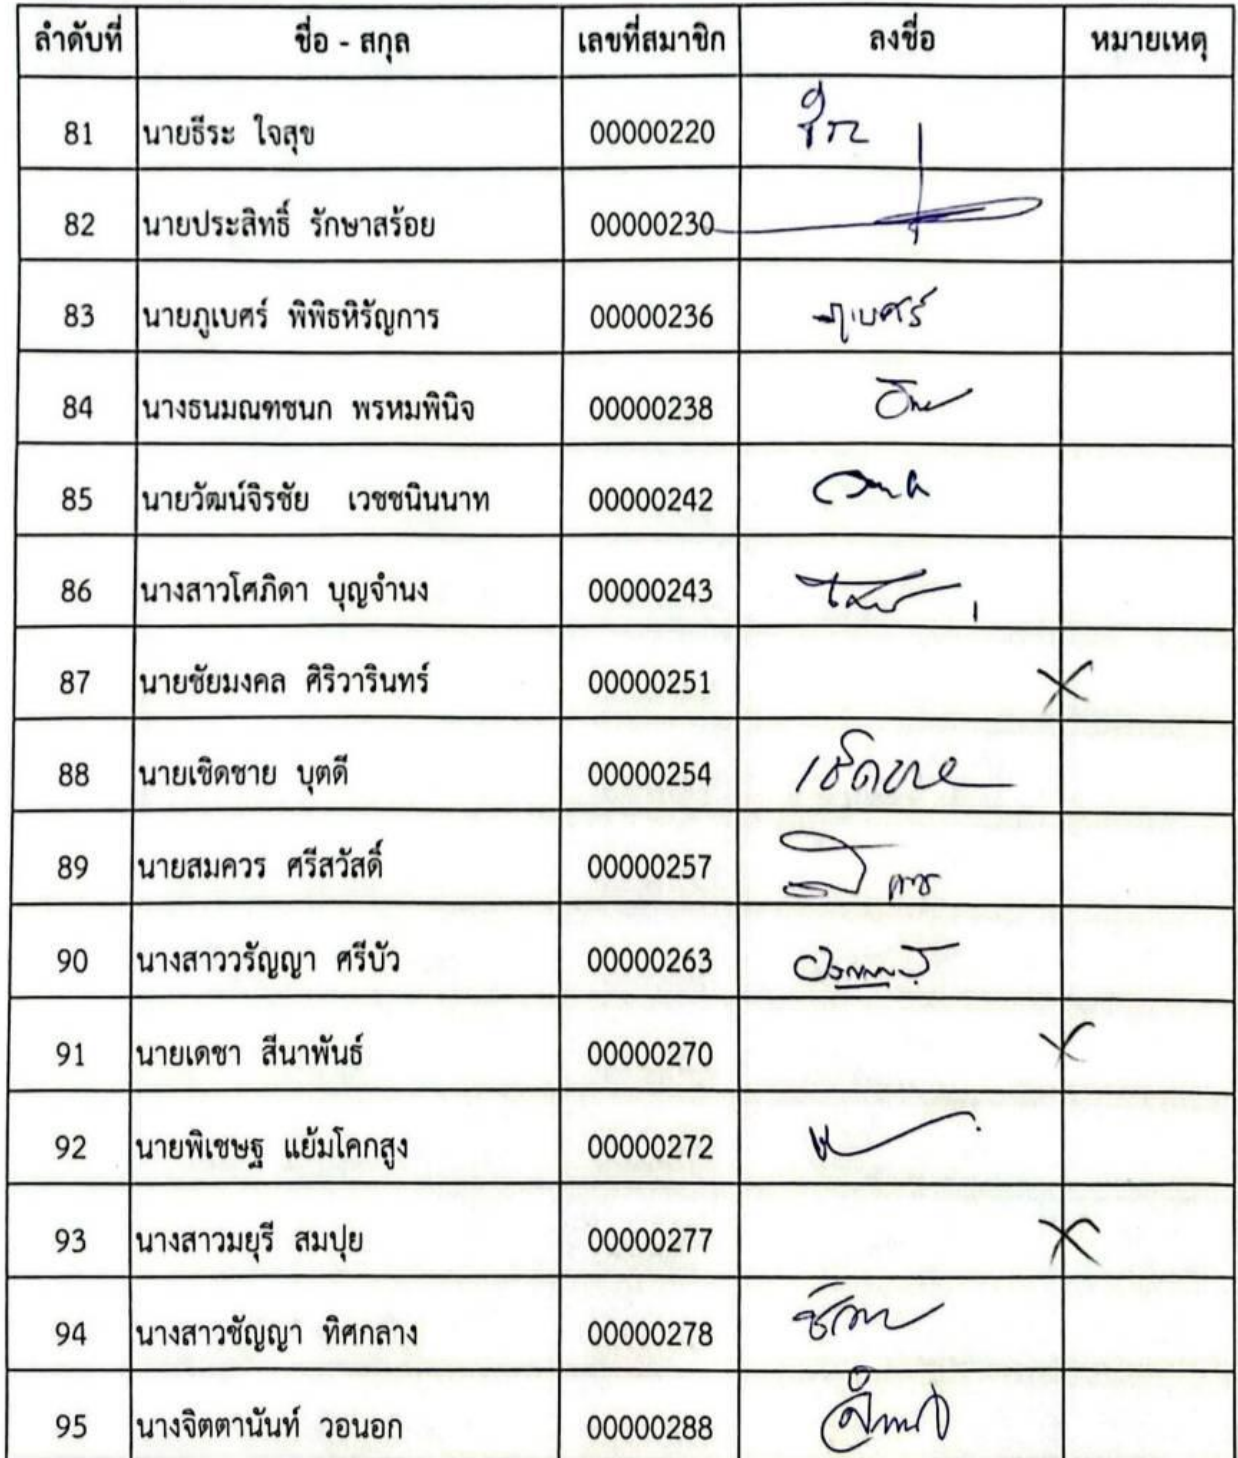 ลำดับที่ ชื่อ - สกุล เลขที่สมาชิก ลงชื่อ หมายเหตุ
81 นายธีระ ใจสุข 00000220
82 นายประสิทธิ์ รักษาสร้อย 00000230
83 นายภูเบศร์ พิพิธหิรัญการ 00000236 ภูเบศร์
84 นางธนมณฑชนก พรหมพินิจ 00000238
85 นายวัฒน์จิรชัย เวชชนินนาท 00000242
86 นางสาวโศภิดา บุญจำนง 00000243
87 นายชัยมงคล ศิริวารินทร์ 00000251
88 นายเชิดชาย บุตดี 00000254 เชิดชาย
89 นายสมควร ศรีสวัสดิ์ 00000257
90 นางสาววรัญญา ศรีบัว 00000263
91 นายเดชา สีนาพันธ์ 00000270
92 นายพิเชษฐ แย้มโคกสูง 00000272
93 นางสาวมยุรี สมปุย 00000277
94 นางสาวชัญญา ทิศกลาง 00000278
95 นางจิตตานันท์ วอนอก 00000288